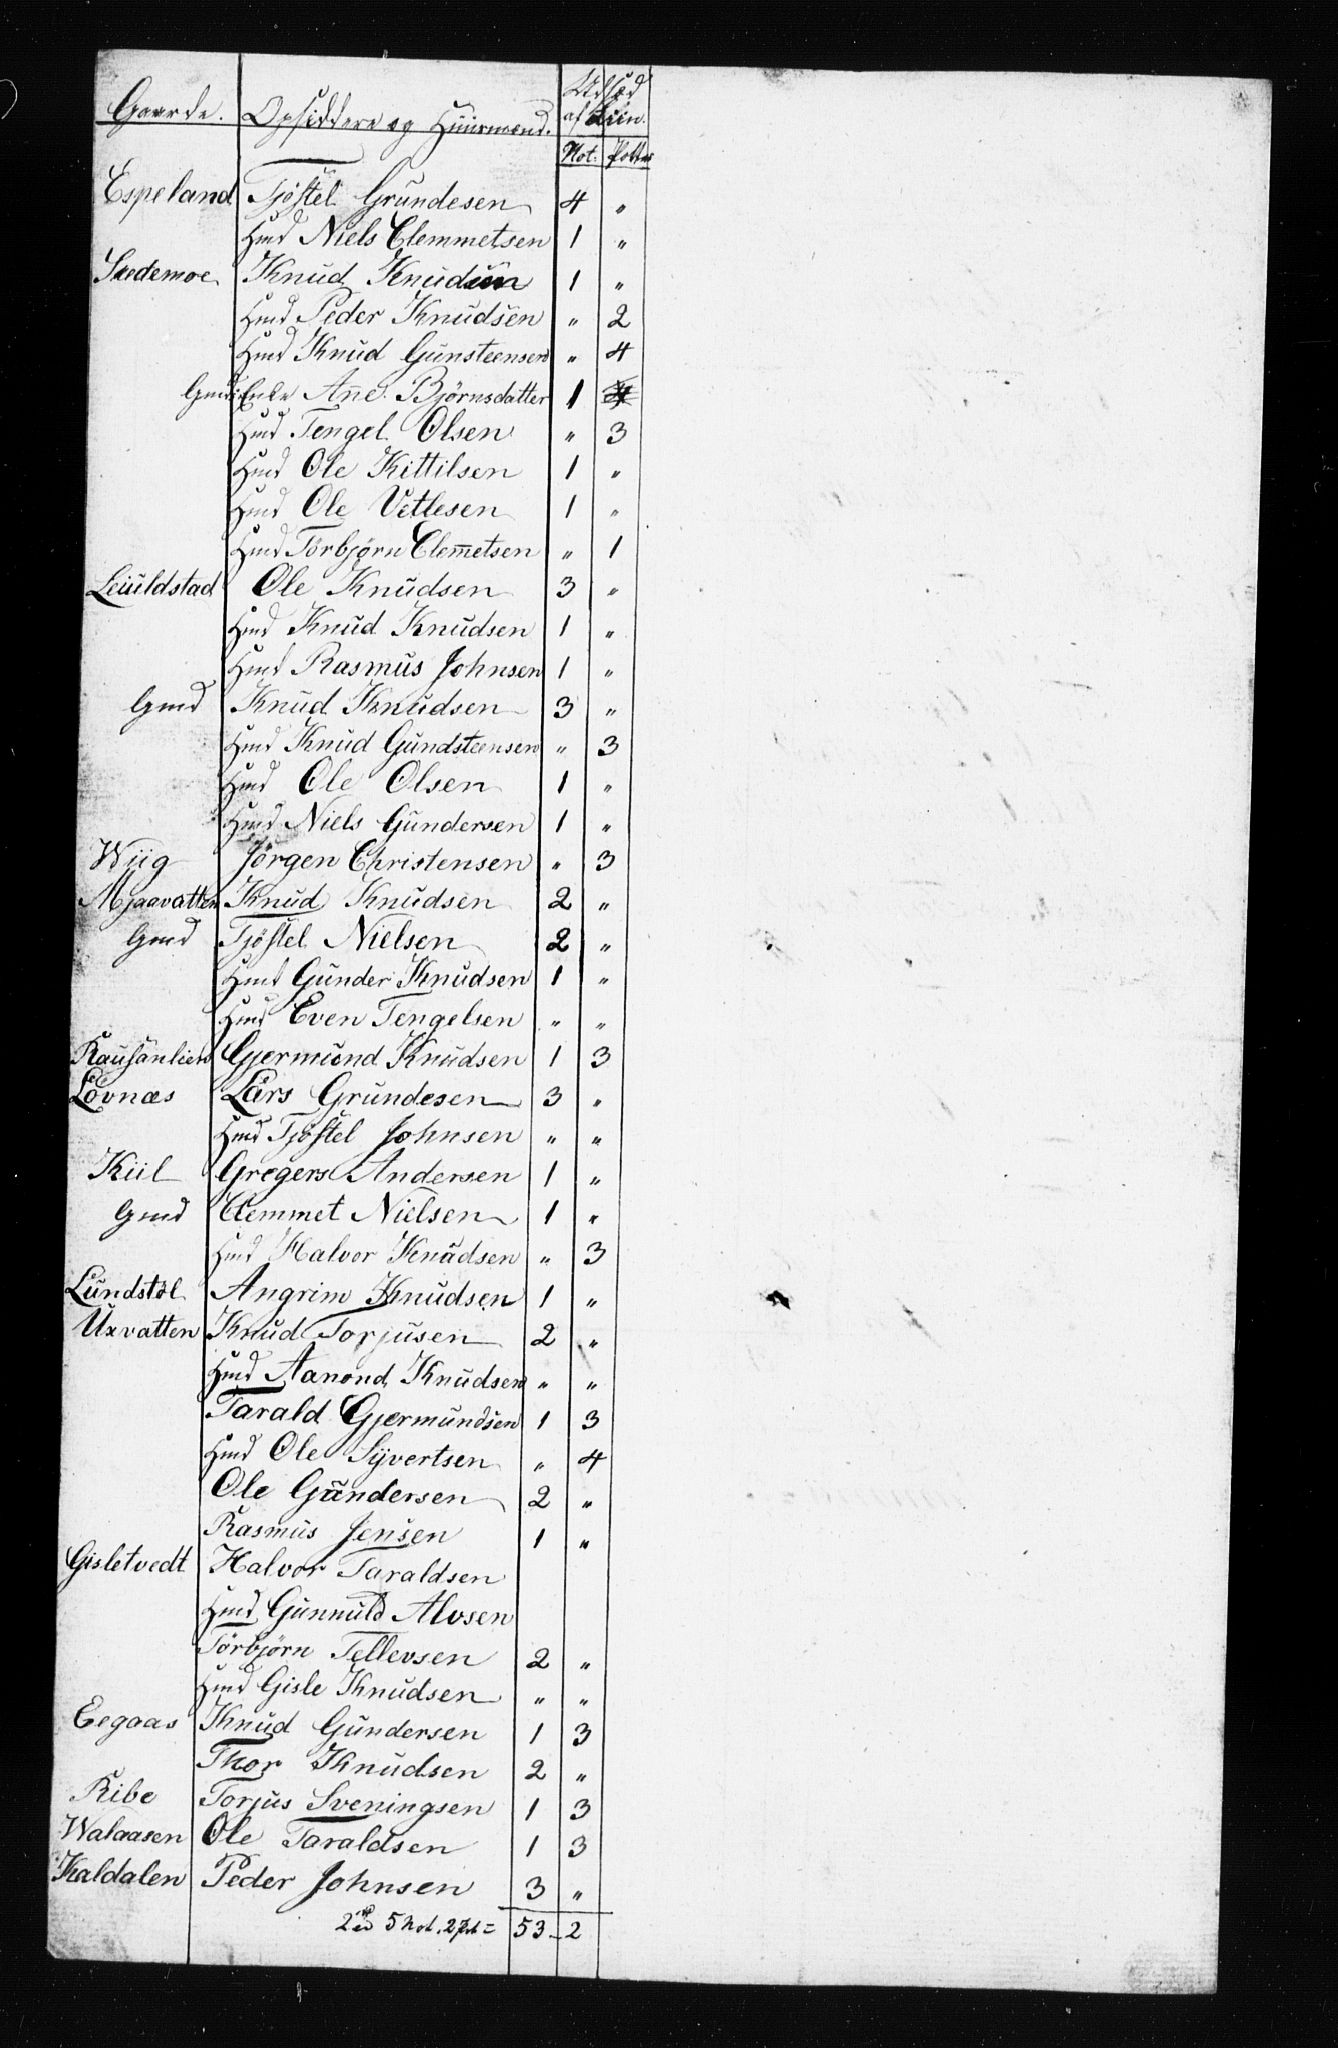 Gaarde. Opsiddere og Huusmænd. Udsæd
af Liin.
Not. Potter
Espeland Tjöstel Grundesen 4 "
Hmd Niels Clemmetsen 1 "
Skedemoe Knud Knudsen 1 "
Hmd Peder Knudsen " 2
Hmd Knud Gunsteensen " 4
Gmd: Enke Ane Björnsdatter 1 4
Hmd Tengel Olsen " 3
Hmd Ole Kittilsen 1 "
Hmd Ole Vetlesen 1 "
Hmd Törbjörn Clemetsen " 1
Leiuldstad Ole Knudsen 3 "
Hmd Knud Knudsen 1 "
Hmd Rasmus Johnsen 1 "
Gmd Knud Knudsen 3 "
Hmd Knud Gundsteensen " 3
Hmd Ole Olsen 1 "
Hmd Niels Gundersen 1 "
Wiig Jörgen Christensen " 3
Mjaavatten Knud Knudsen 2 "
Gmd Tjöstel Nielsen 2 "
Hmd Gunder Knudsen 1 "
Hmd Even Tengelsen " "
Rausanlien Gjermund Knudsen 1 3
Lövnæs Lars Grundesen 3 "
Hmd Tjöstel Johnsen " "
Kiil Gregers Andersen 1 "
Gmd Clemmet Nielsen 1 "
Hmd Halvor Knudsen " 3
Lundstöl Angrim Knudsen 1 "
Uxvatten Knud Torjusen 2 "
Hmd Aanond Knudsen " "
Tarald Gjermundsen 1 3
Hmd Ole Syvertsen " 4
Ole Gundersen 2 "
Rasmus Jensen 1 "
Gisletvedt Halvor Taraldsen
Hmd Gunnuld Alvsen
Törbjörn Tellevsen 2 "
Hmd Gisle Knudsen " "
Eegaas Knud Gundersen 1 3
Thor Knudsen 2 "
Ribe Torjus Sveningsen 1 3
Walaasen Ole Taraldsen 1 3
Kaldalen Peder Johnsen 3 "
5 Not. 2 = 53 - 2